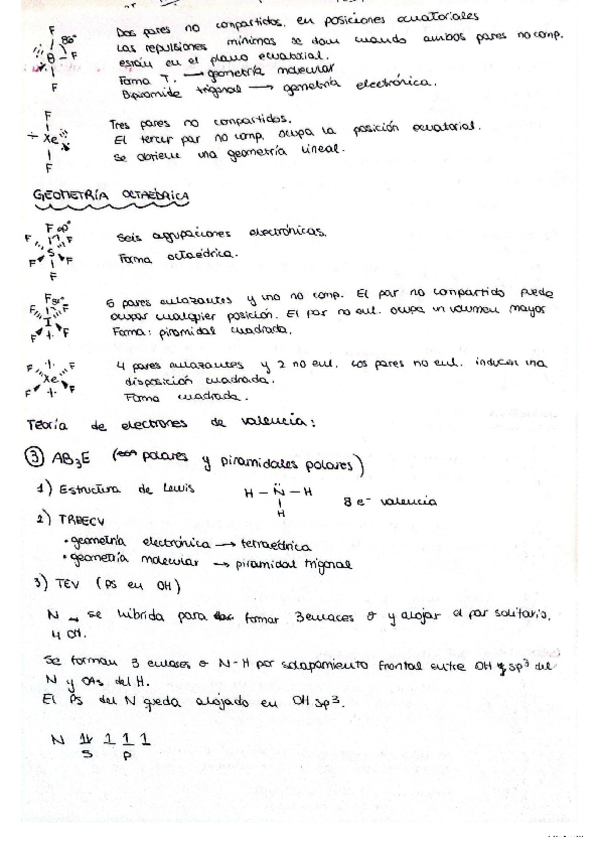 Dos pares no compartidos, en posiciones ecuatoriales
Las repulsiones mínimas se dan cuando ambos pares no comp.
están en el plano ecuatorial.
Forma T. → geometría molecular
Bipirámide trigonal → geometría electrónica.
F
80°
F
F
Tres pares no compartidos.
El tercer par no comp. ocupa la posición ecuatorial.
Se obtiene una geometría lineal.
F
Xe
F
GEOMETRÍA OCTAÉDRICA
Seis agrupaciones electrónicas.
Forma octaédrica.
F
F F
S
F F
F
6 pares enlazantes y uno no comp. El par no compartido puede
ocupar cualquier posición. El par no enl. ocupa un volumen mayor
Forma: piramidal cuadrada.
F
F F
I
F F
4 pares enlazantes y 2 no enl. Los pares no enl. inducen una
disposición cuadrada.
Forma cuadrada.
F F
Xe
F F
Teoría de electrones de valencia:
③ AB₃E (polares y piramidales polares)
1) Estructura de Lewis H – N̈ – H 8 e⁻ valencia
H
2) TRPECV
• geometría electrónica → tetraédrica
• geometría molecular → piramidal trigonal
3) TEV (PS en OH)
N → se hibrida para formar 3 enlaces σ y alojar el par solitario.
4 OH.
Se forman 3 enlaces σ N-H por solapamiento frontal entre OH sp³ del
N y OAs del H.
El PS del N queda alojado en OH sp³.
N 1↓ 1 1 1
S P